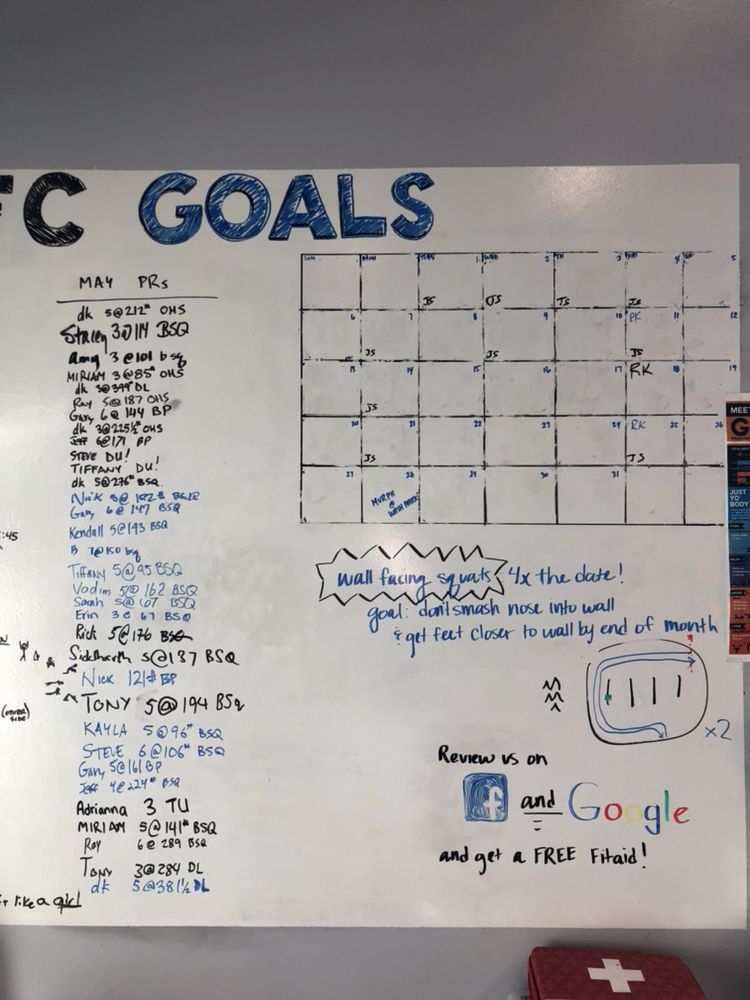 FC GOALS
MAY PRs
dk 5@212# OHS
Stacey 3@114 BSQ
Amy 3@101 bsq
MIRIAM 3@85# OHS
dk 3@399# DL
Ray 5@187 OHS
Gary 6@144 BP
dk 3@225½# OHS
Jeff 6@171 BP
STEVE DU!
TIFFANY DU!
dk 5@276# BSQ
Nick
Gary 6@147 BSQ
Kendall 5@143 BSQ
B 7@150 bsq
Tiffany 5@95 BSQ
Vadim 5@162 BSQ
Sarah 5@67 BSQ
Erin 3@67 BSQ
Rick 5@176 BSQ
Siddharth 5@137 BSQ
Nick 121# BP
TONY 5@194 BSQ
KAYLA 5@96# BSQ
STEVE 6@106# BSQ
Gary 5@161 BP
Jeff 4@224# BSQ
Adrianna 3 TU
MIRIAM 5@141# BSQ
Ray 6@289 BSQ
TONY 3@284 DL
dk 5@381½ DL
:45
(OTHER SIDE)
like a girl
SUN MON TUES 1 WED 2 TH 3 FRI 4 SAT 5
JS JS JS JS
6 7 8 9 10 RK 11 12
JS JS JS
13 14 15 16 17 RK 18 19
JS
20 21 22 23 24 RK 25 26
JS JS
27 28 29 30 31
MURPH @
wall facing squats 4x the date!
goal: don't smash nose into wall
& get feet closer to wall by end of month
x2
Review us on
f and Google
and get a FREE Fitaid!
MEET
G
JUST
YO'
BODY